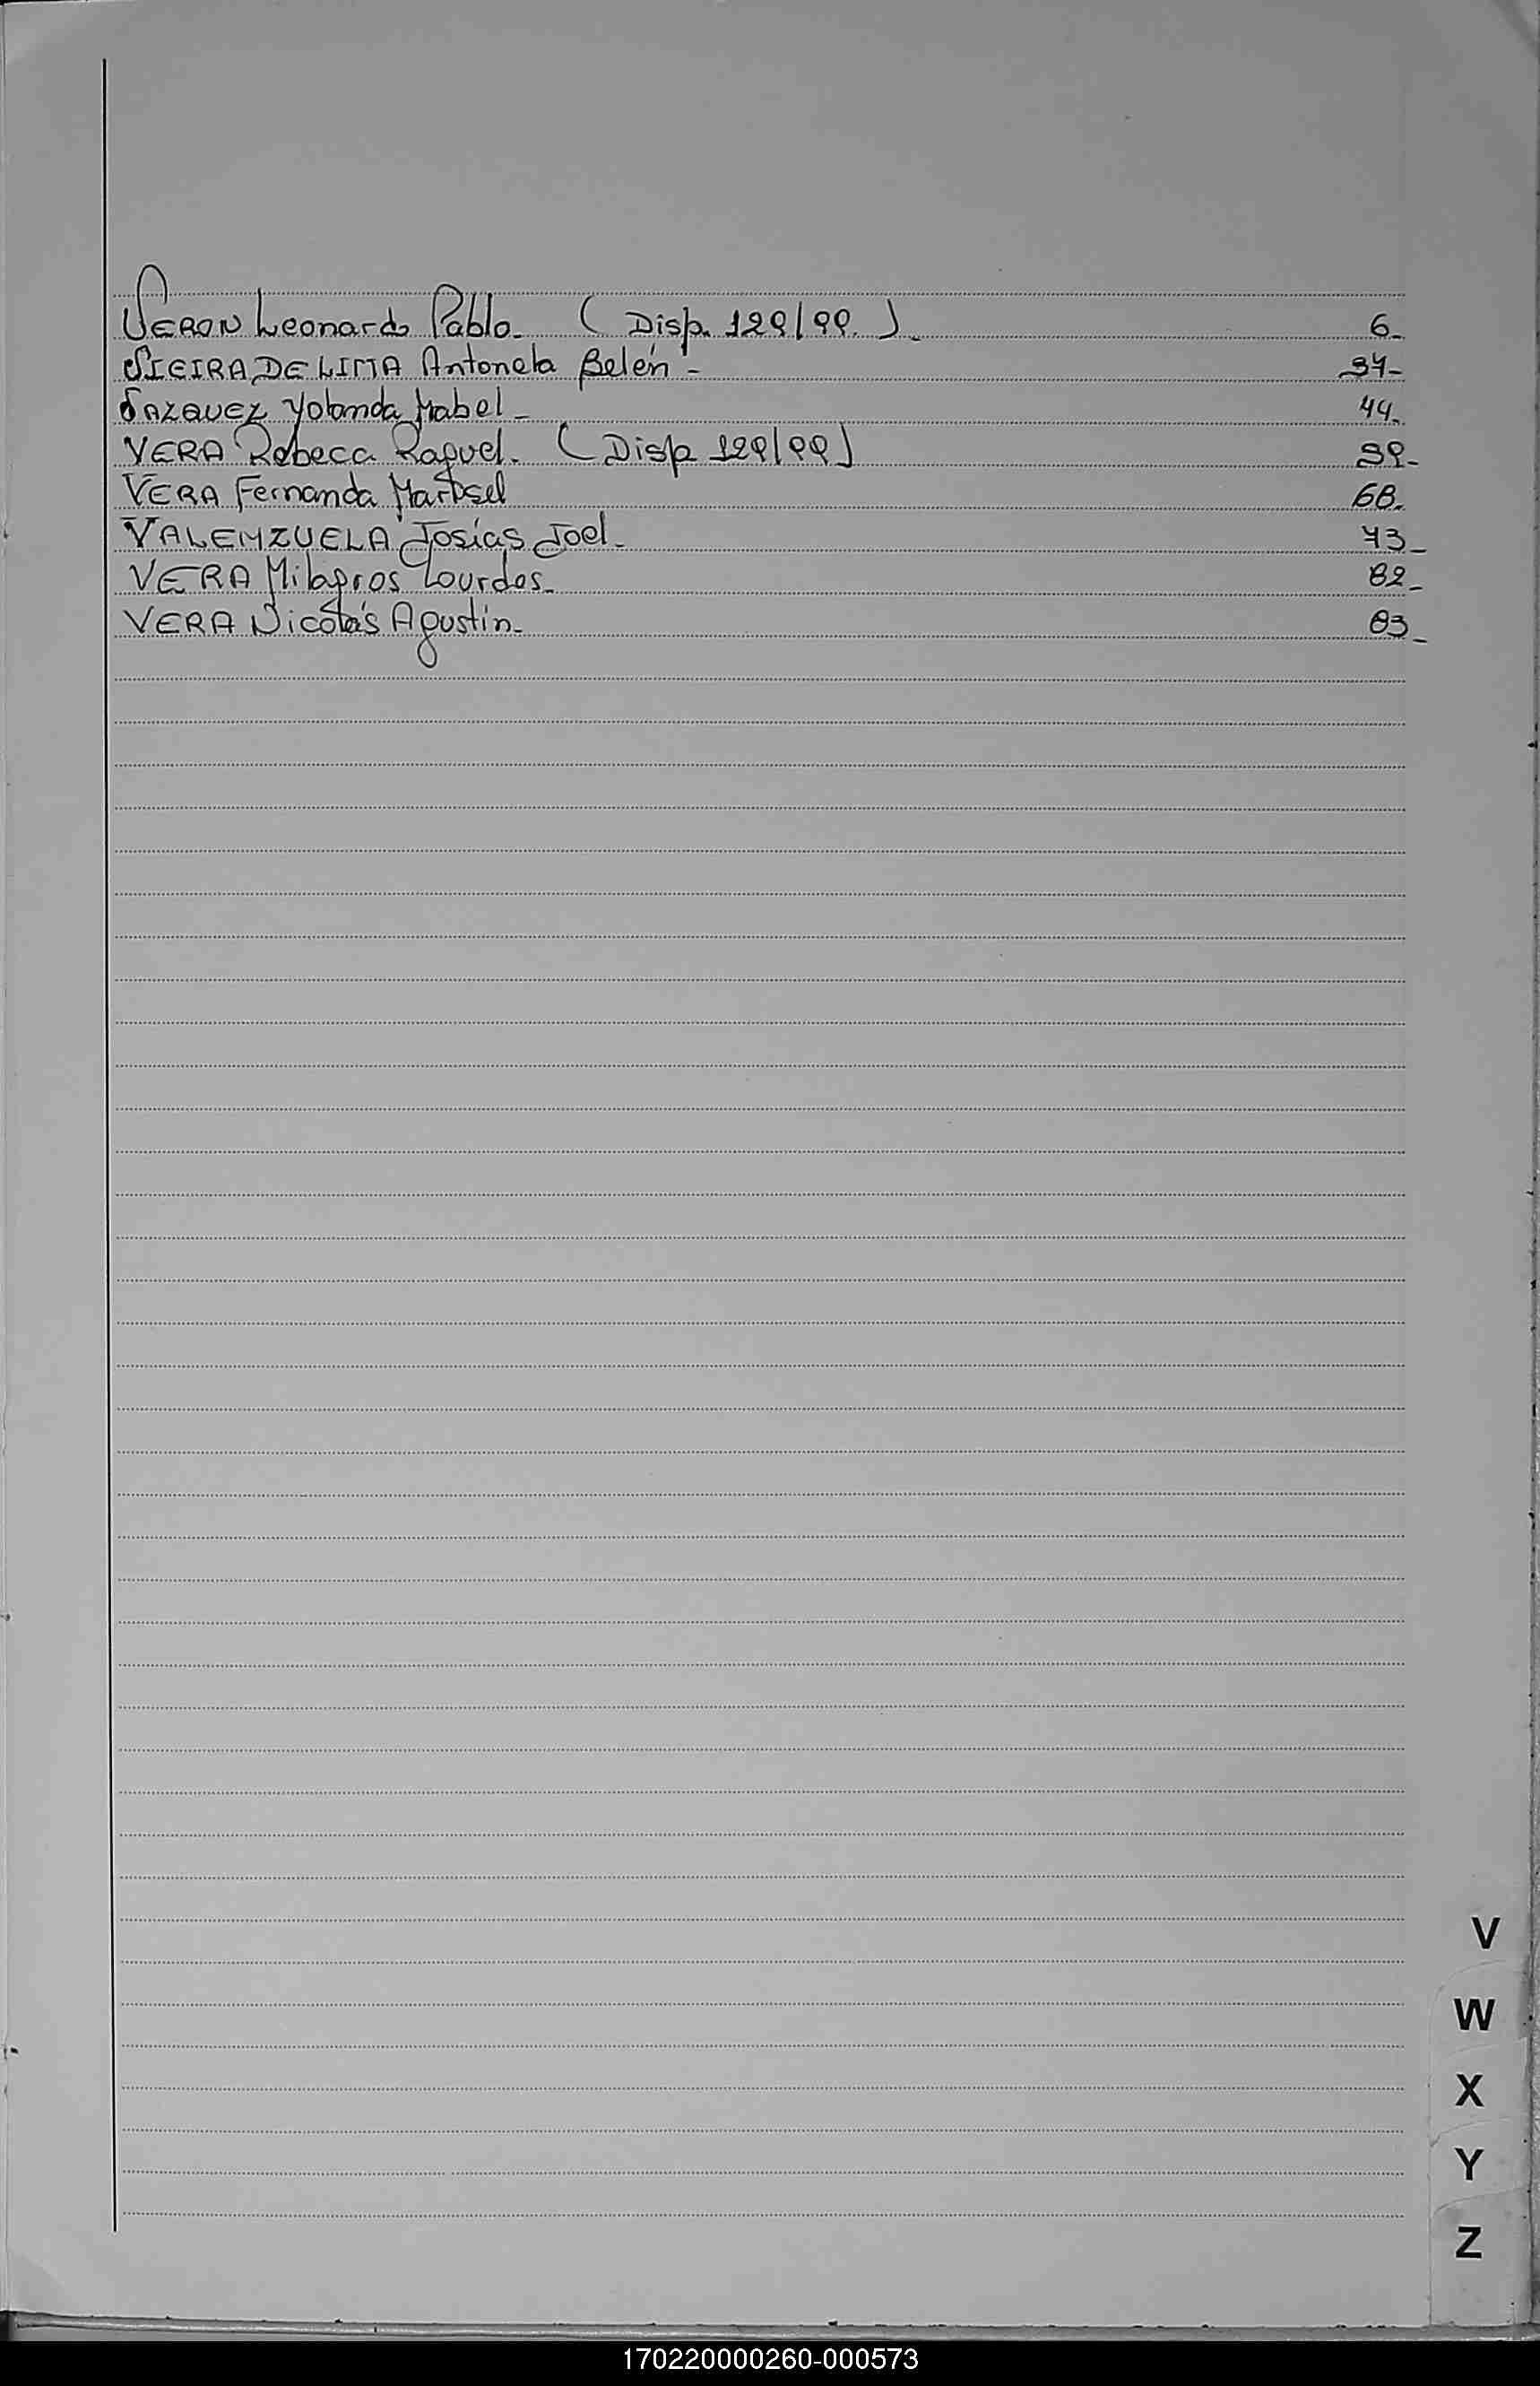 VERON Leonardo Pablo. (Disp. 129/99.) 6-
VIEIRA DE LIMA Antonela Belén - 37-
VAZQUEZ Yolanda Mabel - 44-
VERA Rebeca Raquel. (Disp 129/99) 39-
VERA Fernanda Marisel 68.
VALENZUELA Josías Joel. 73-
VERA Milagros Lourdes. 82-
VERA Nicolás Agustín. 83-
V
W
X
Y
Z
170220000260-000573